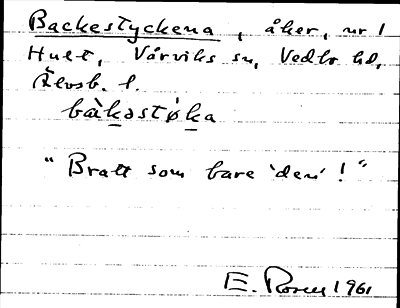 Backestyckena, åker, nr 1
Hult, Vårviks sn, Vedbo hd,
Älvsb. l.
bàkəstø̀ka
"Bratt som bare 'den'!"
E. Rosell 1961